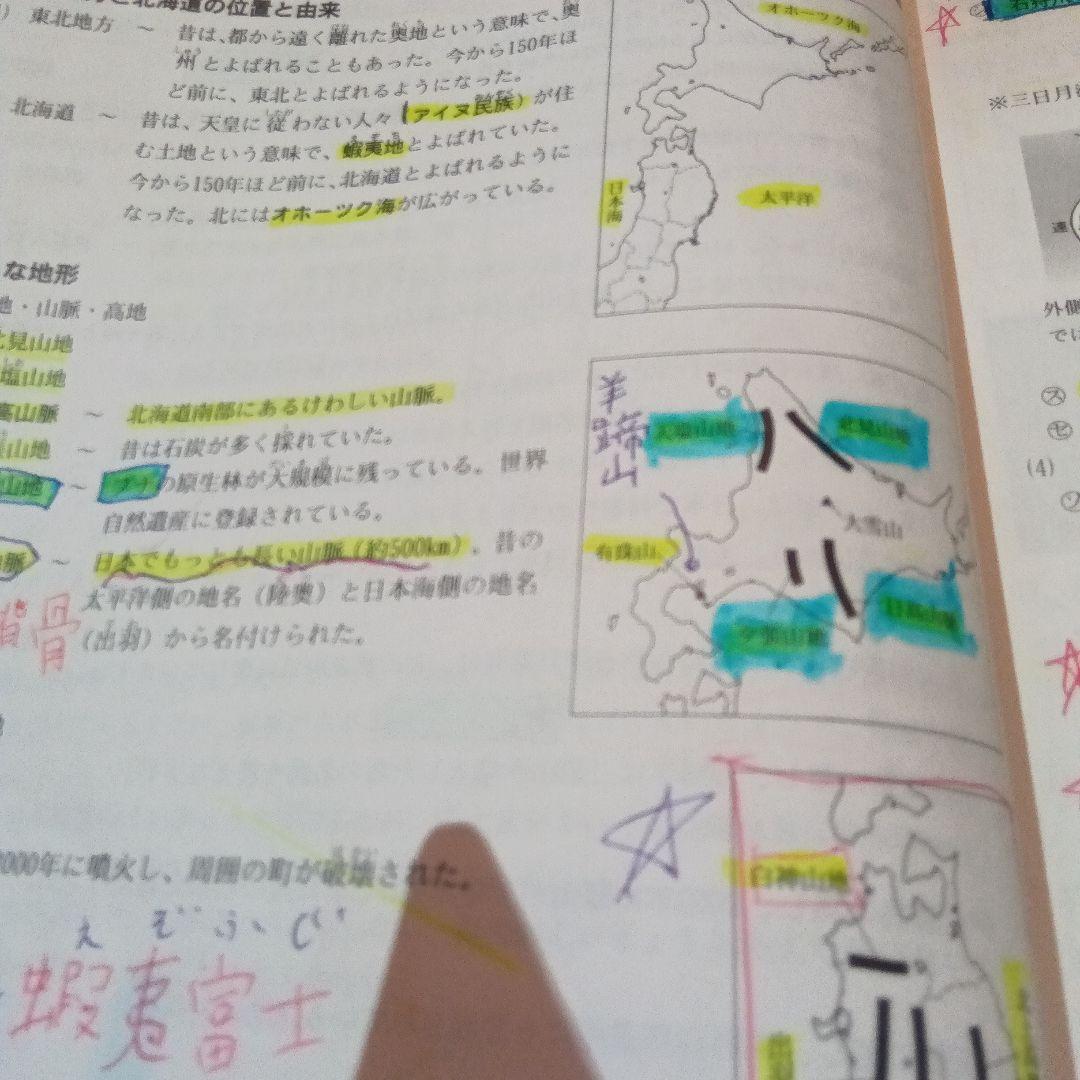 北海道の位置と由来
東北地方 ～ 昔は、都から遠く離れた奥地という意味で、奥
州とよばれることもあった。今から150年ほ
ど前に、東北とよばれるようになった。
北海道 ～ 昔は、天皇に従わない人々（アイヌ民族）が住
む土地という意味で、蝦夷地とよばれていた。
今から150年ほど前に、北海道とよばれるように
なった。北にはオホーツク海が広がっている。
な地形
地・山脈・高地
見山地
塩山地
高山脈 ～ 北海道南部にあるけわしい山脈。
山地 ～ 昔は石炭が多く採れていた。
山地 ～ ブナの原生林が大規模に残っている。世界
自然遺産に登録されている。
山脈 ～ 日本でもっとも長い山脈（約500km）。昔の
太平洋側の地名（陸奥）と日本海側の地名
（出羽）から名付けられた。
背骨
2000年に噴火し、周囲の町が破壊された。
えぞふじ
蝦夷富士
オホーツク海
日本海
太平洋
羊蹄山
天塩山地
北見山地
大雪山
有珠山
夕張山地
日高山脈
白神山地
※三日月
外側
では
㋜
㋝
(4)
㋞